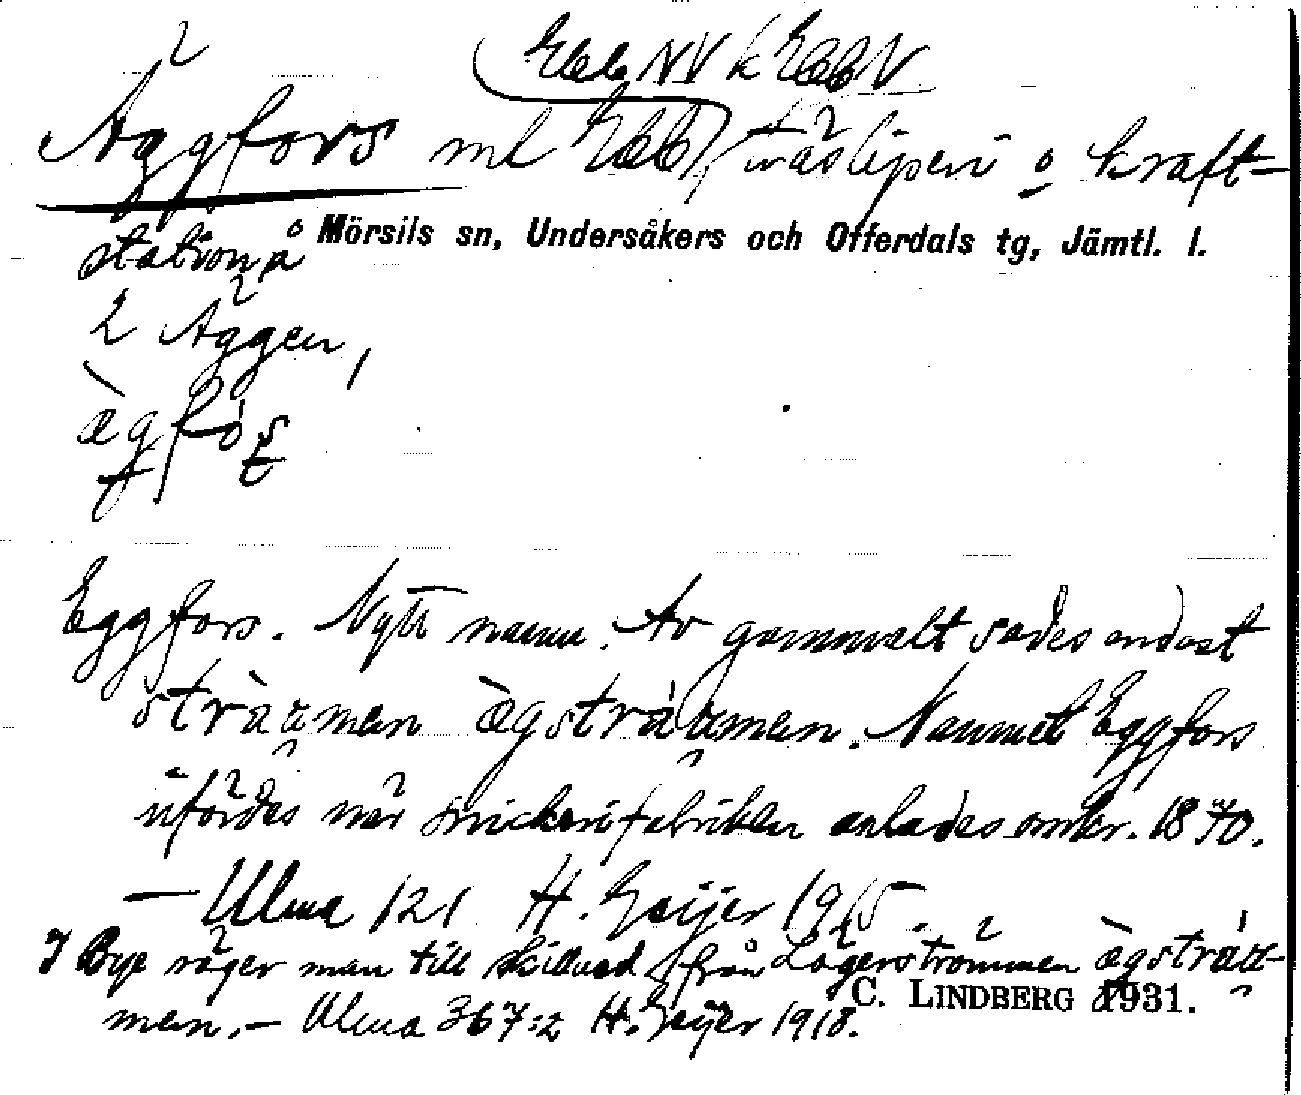 Äggfors ml Ebb, träsliperi o kraft-
station å Mörsils sn, Undersåkers och Offerdals tg, Jämtl. l.
2 Äggen,
Eggfors. Nytt namn. Av gammalt sades endast
sträamen ægsträamen. Namnet Eggfors
infördes när snickerifabriken anlades omkr. 1870.
— Ulma 121 H. Geijer 1915.
I Bye säger man till skillnad från Lägerströmmen ægsträa-
men. — Ulma 367:2 H. Geijer 1918.
C. LINDBERG 1931.